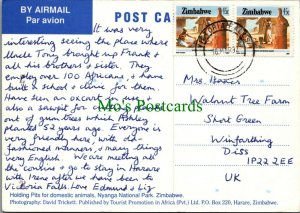 BY AIRMAIL
Par avion
POST CARD
Zimbabwe
Zimbabwe
It was very
interesting seeing the place where
Uncle Tony brought up Frank +
all his brothers + sister. They
employ over 100 Africans + have
built a school + clinic for them.
Have seen an oxcart in use +
also a steep for made
out of gum trees which Ashley
planted 52 years ago. Everyone is
very friendly here, with old-
fashioned manners, + many things
very English. We are meeting all
the cousins + go to stay in Harare
with Irene after we have been to
Victoria Falls Love Edmund + Liz
Mrs. Hawes
Walnut Tree Farm
Short Green
Winfarthing
Diss
IP22 2EE
UK
Mo's Postcards
Holding Pits for domestic animals, Nyanga National Park, Zimbabwe.
Photography: David Trickett. Published by Tourist Promotion in Africa (Pvt.) Ltd. P.O. Box 220, Harare, Zimbabwe